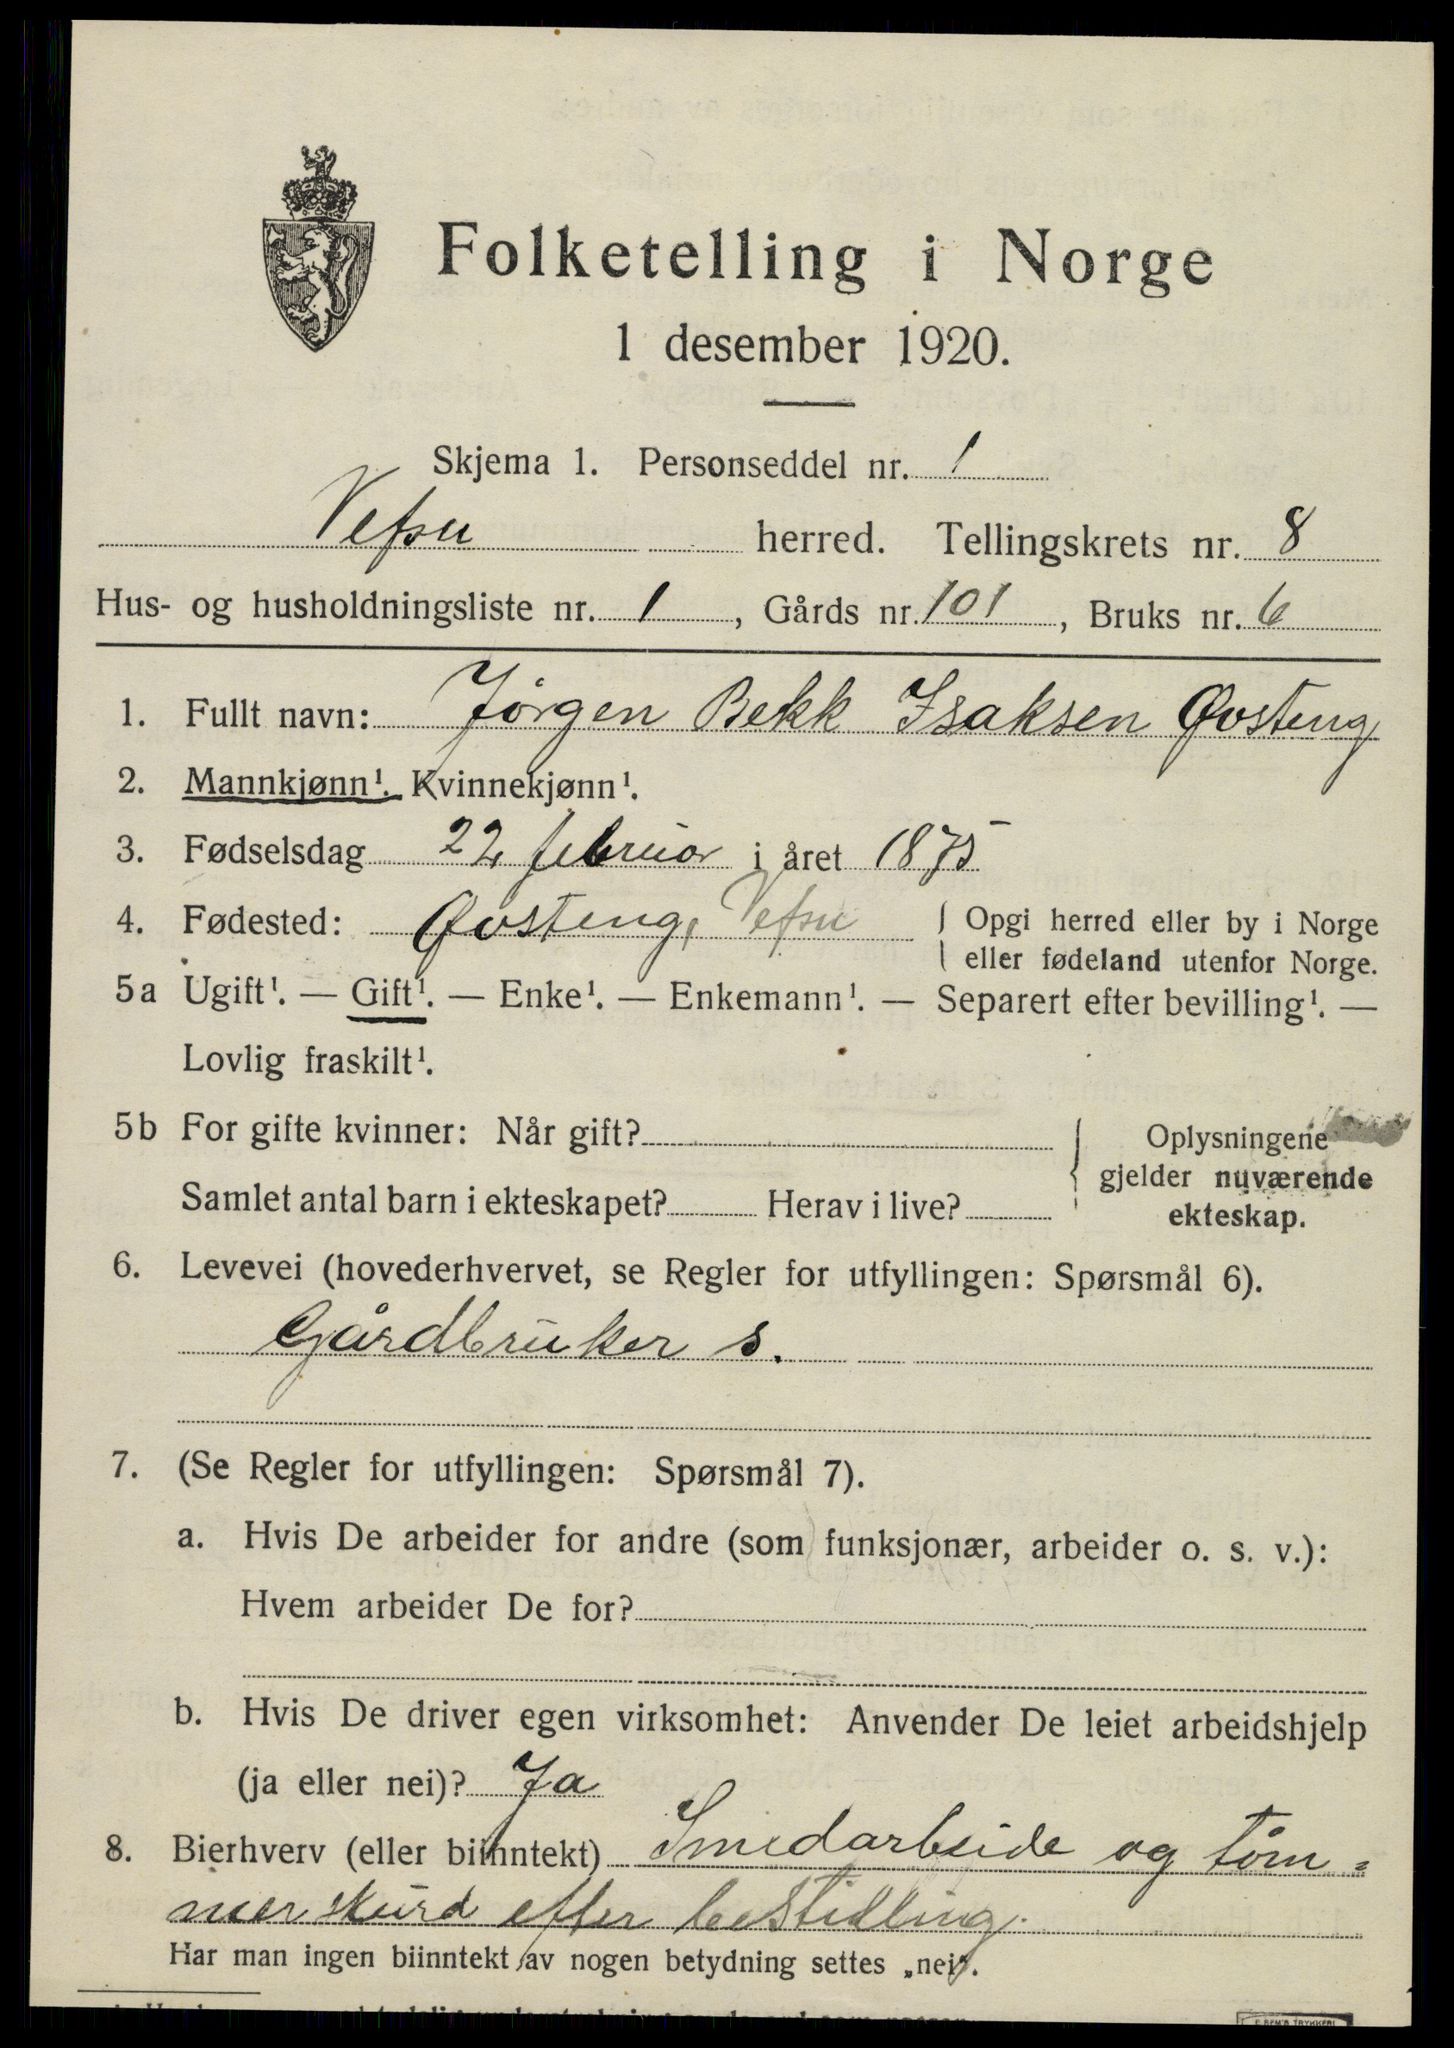 Folketelling i Norge
1 desember 1920.
Skjema 1. Personseddel nr. 1
Vefsn herred. Tellingskrets nr. 8
Hus- og husholdningsliste nr. 1, Gårds nr. 101, Bruks nr. 6
1. Fullt navn: Jørgen Bekk Isaksen Øvsteng
2. Mannkjønn¹. Kvinnekjønn¹.
3. Fødselsdag 22 februar i året 1875
4. Fødested: Øvsteng, Vefsn { Opgi herred eller by i Norge
eller fødeland utenfor Norge.
5a Ugift¹. — Gift¹. — Enke¹. — Enkemann¹. — Separert efter bevilling¹. —
Lovlig fraskilt¹.
5b For gifte kvinner: Når gift?
Samlet antal barn i ekteskapet? Herav i live?
{ Oplysningene
gjelder nuværende
ekteskap.
6. Levevei (hovederhvervet, se Regler for utfyllingen: Spørsmål 6).
Gårdbruker s.
7. (Se Regler for utfyllingen: Spørsmål 7).
a. Hvis De arbeider for andre (som funksjonær, arbeider o. s. v.):
Hvem arbeider De for?
b. Hvis De driver egen virksomhet: Anvender De leiet arbeidshjelp
(ja eller nei)? Ja
8. Bierhverv (eller biinntekt) Smedarbeide og tøm-
merskurd efter bestilling.
Har man ingen biinntekt av nogen betydning settes „nei".